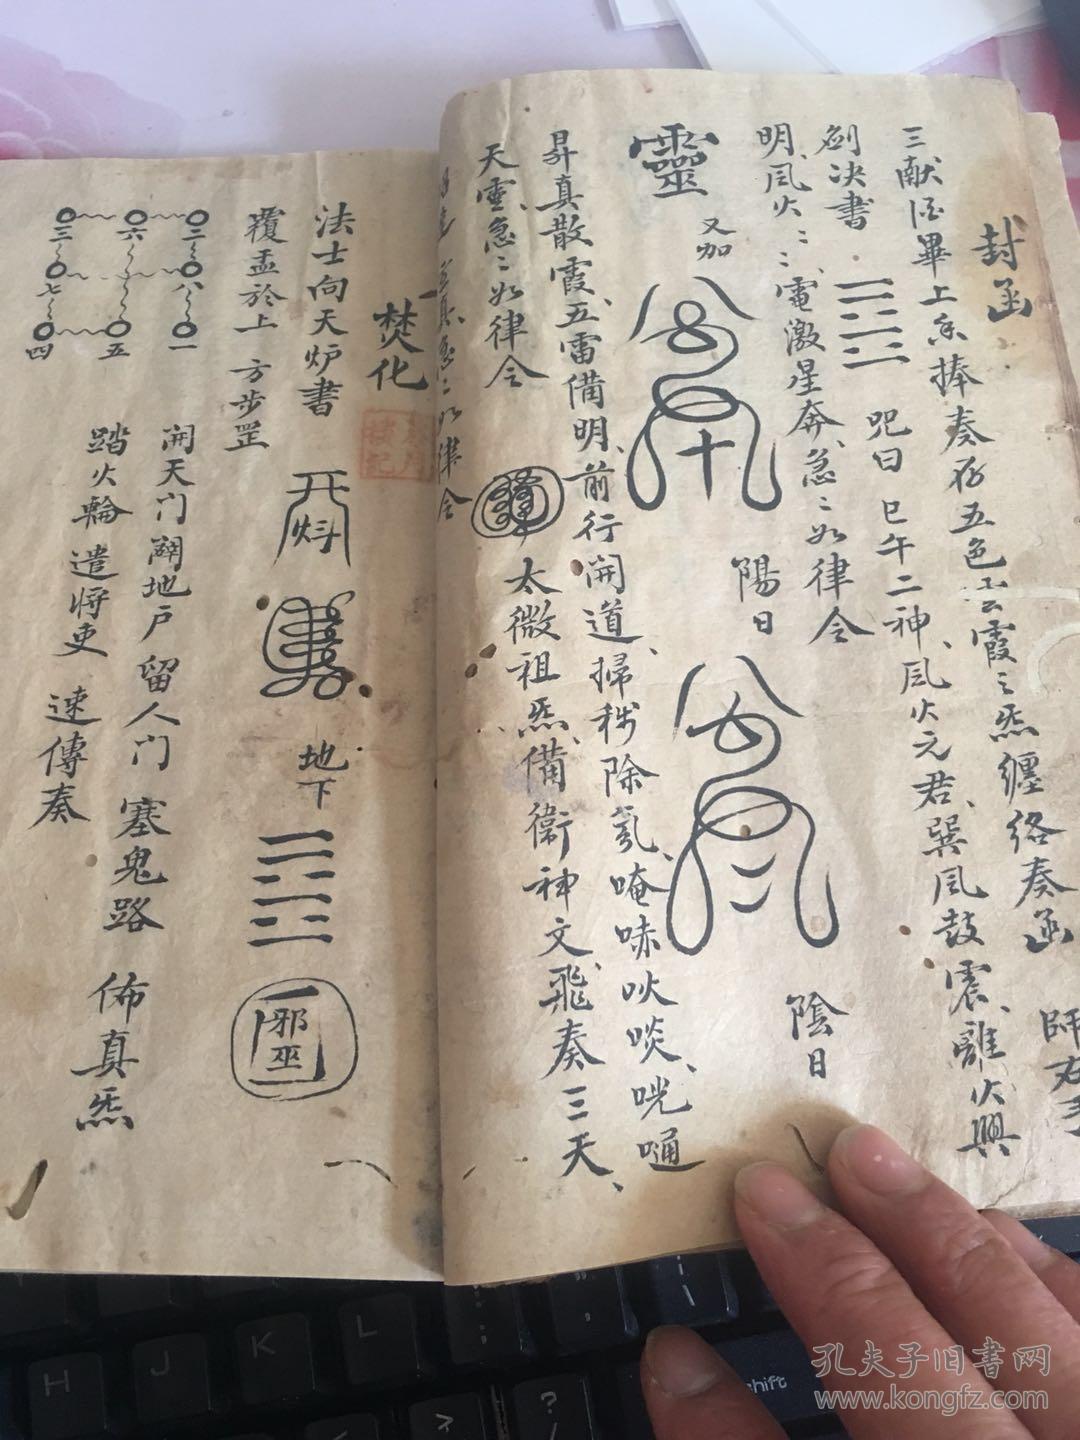 封函
三献酒畢上香捧奏存五色雲霞之炁纏络奏函 師右手
劍決書 三三
咒曰 巳午二神風火元君、巽风鼓震、離火興
明、风火〻、電激星奔、急〻如律令
靈
又加
陽日
陰日
昇真散霞、五雷備明、前行開道、掃秽除氛、唵哧吙啖、咣嗵
太微祖炁、備衛神文、飛奏三天、
天靈、急〻如律令
真急〻如律令
焚化
法士向天炉書
地下
邪巫
覆盂於上 方步罡
開天门 闢地户 留人门 塞鬼路 佈真炁
踏火輪 遣将吏 速傳奏
二 六 三
八 七
一 五 四
H J K L
shift
孔夫子旧書网
www.kongfz.com